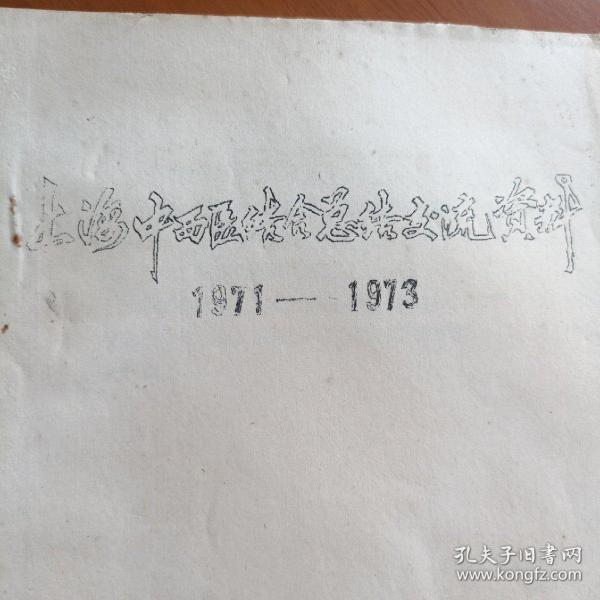 上海中西医结合总结交流资料
1971——1973
孔夫子旧书网
www.kongfz.com